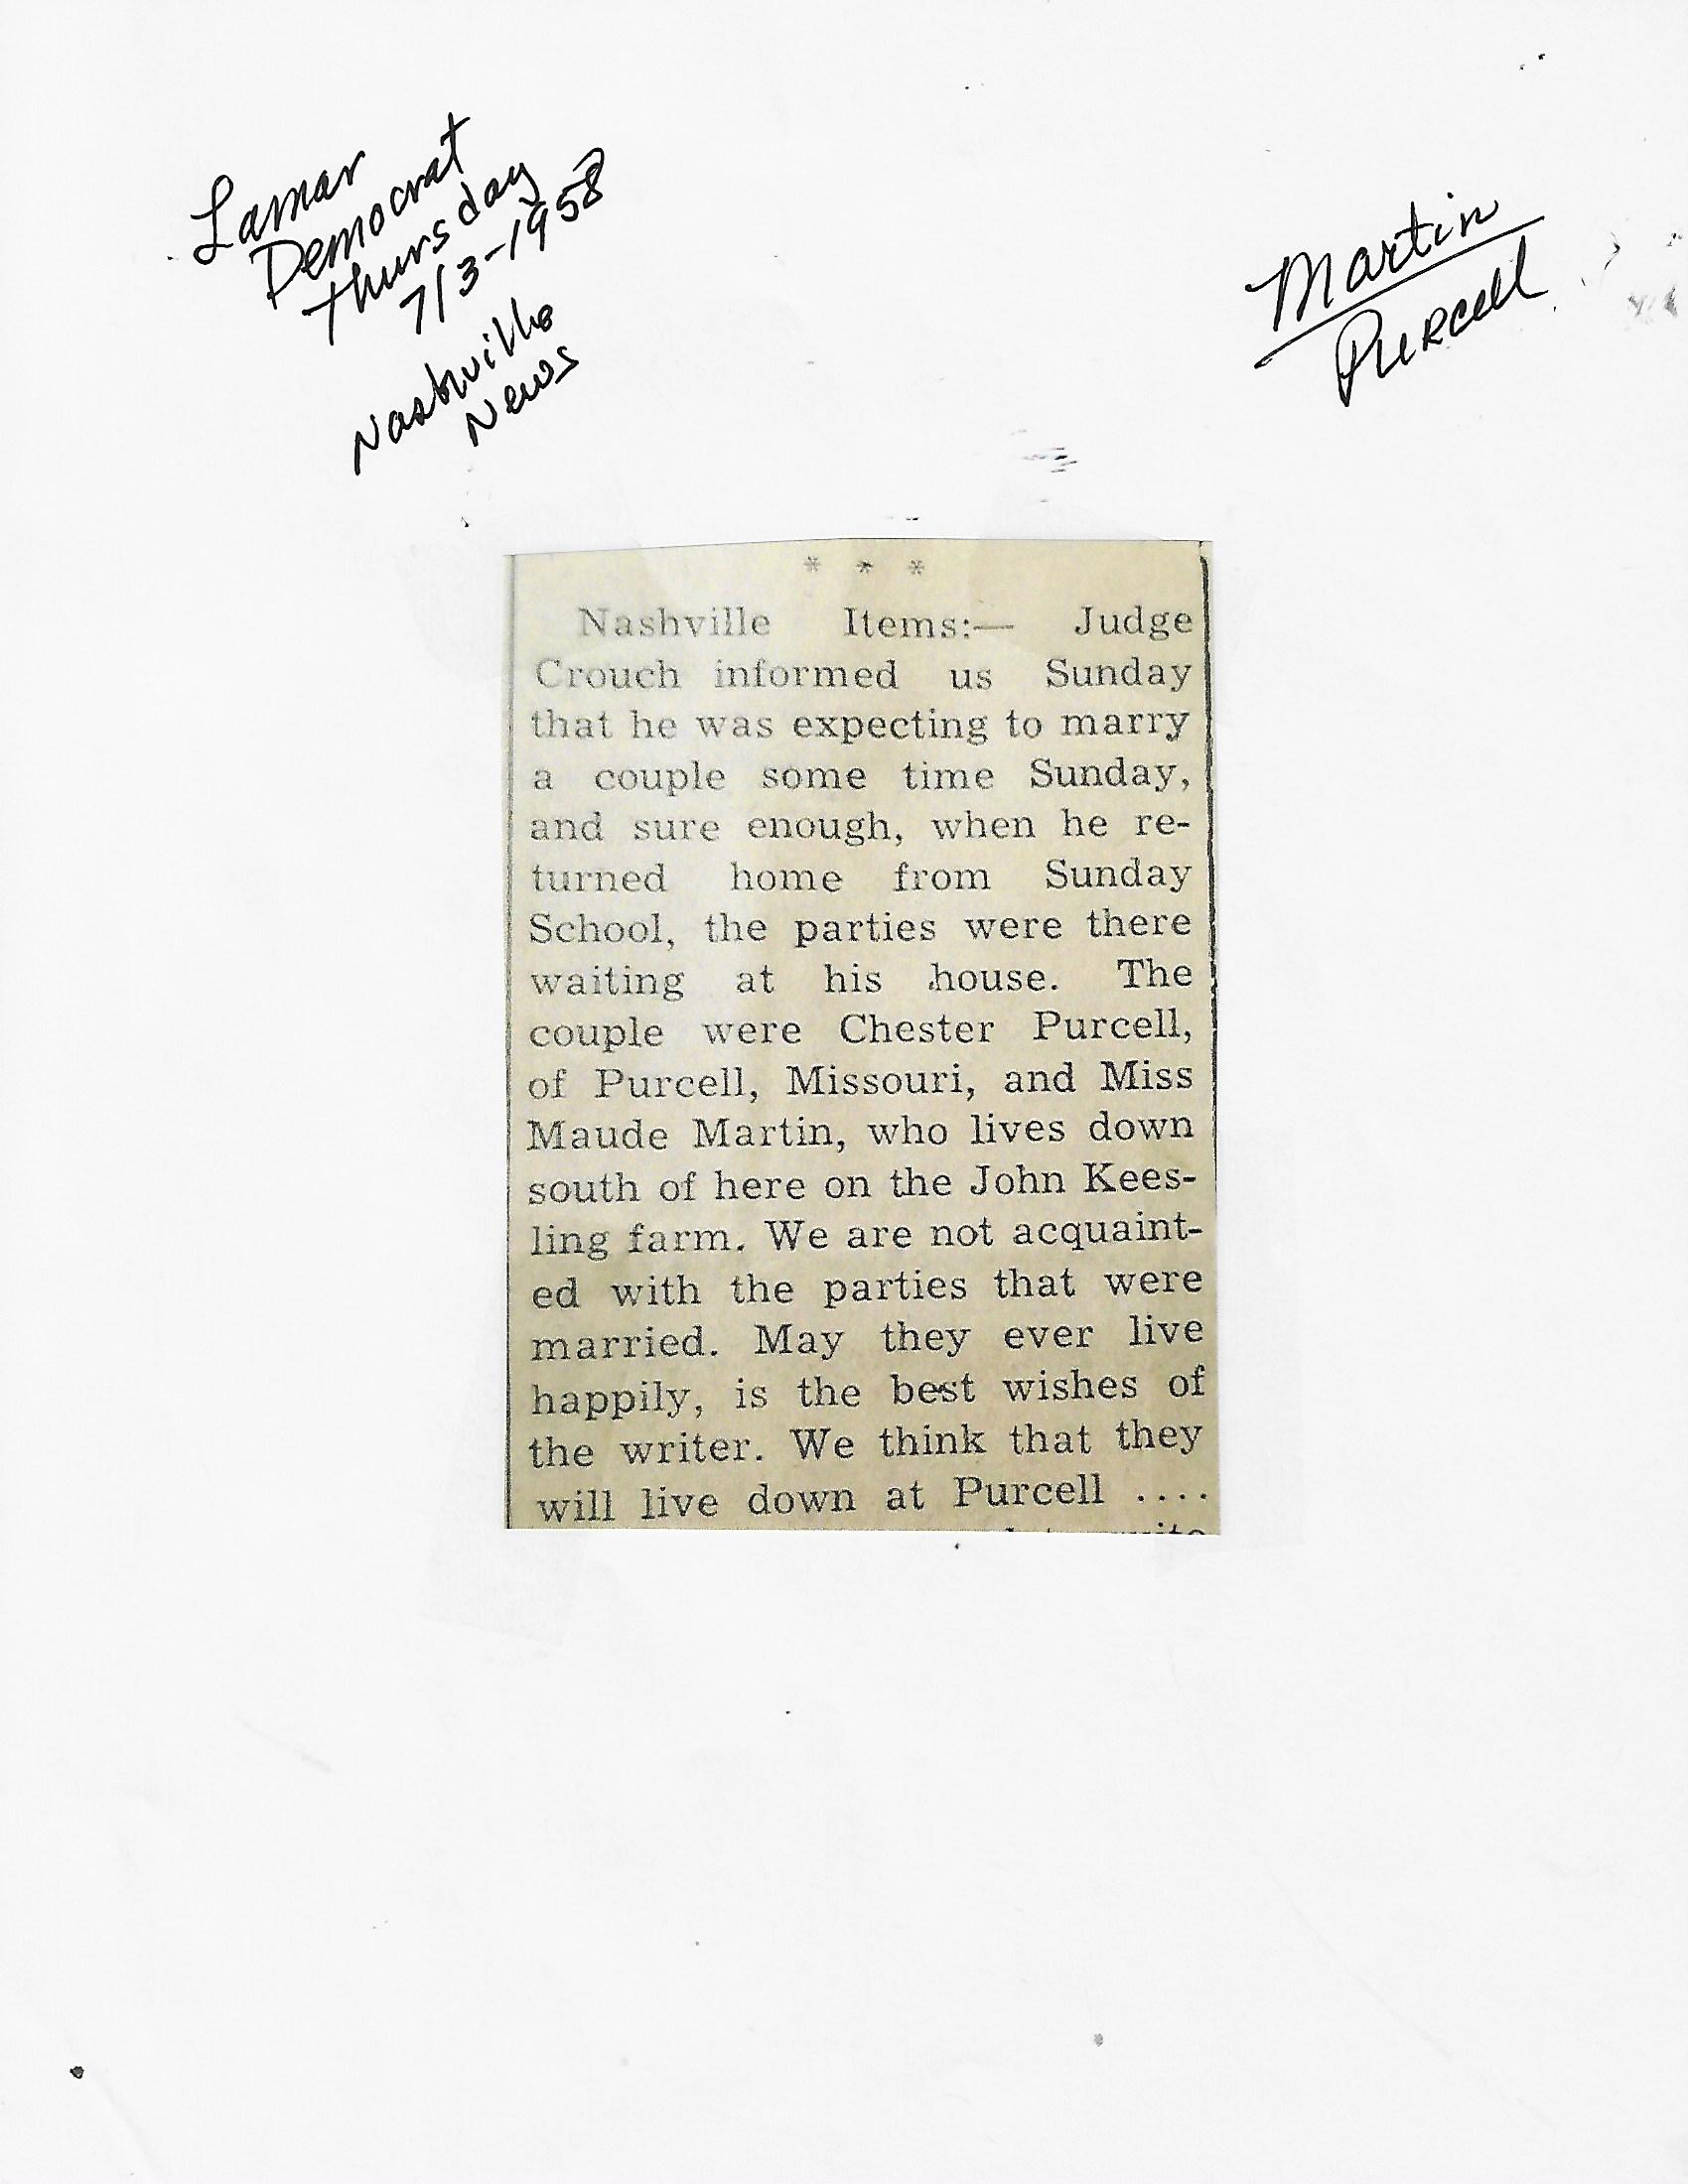 Lamar
Democrat
Thursday
7/3-1958
Nashville
News
Martin
Purcell
* * *
Nashville Items:— Judge
Crouch informed us Sunday
that he was expecting to marry
a couple some time Sunday,
and sure enough, when he re-
turned home from Sunday
School, the parties were there
waiting at his house. The
couple were Chester Purcell,
of Purcell, Missouri, and Miss
Maude Martin, who lives down
south of here on the John Kees-
ling farm. We are not acquaint-
ed with the parties that were
married. May they ever live
happily, is the best wishes of
the writer. We think that they
will live down at Purcell ....